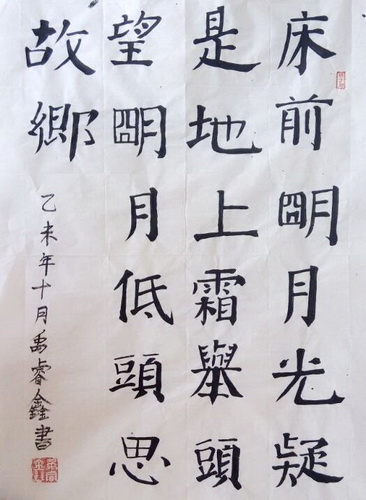 床前明月光疑
是地上霜舉頭
望明月低頭思
故鄉
乙未年十月禹睿鑫書